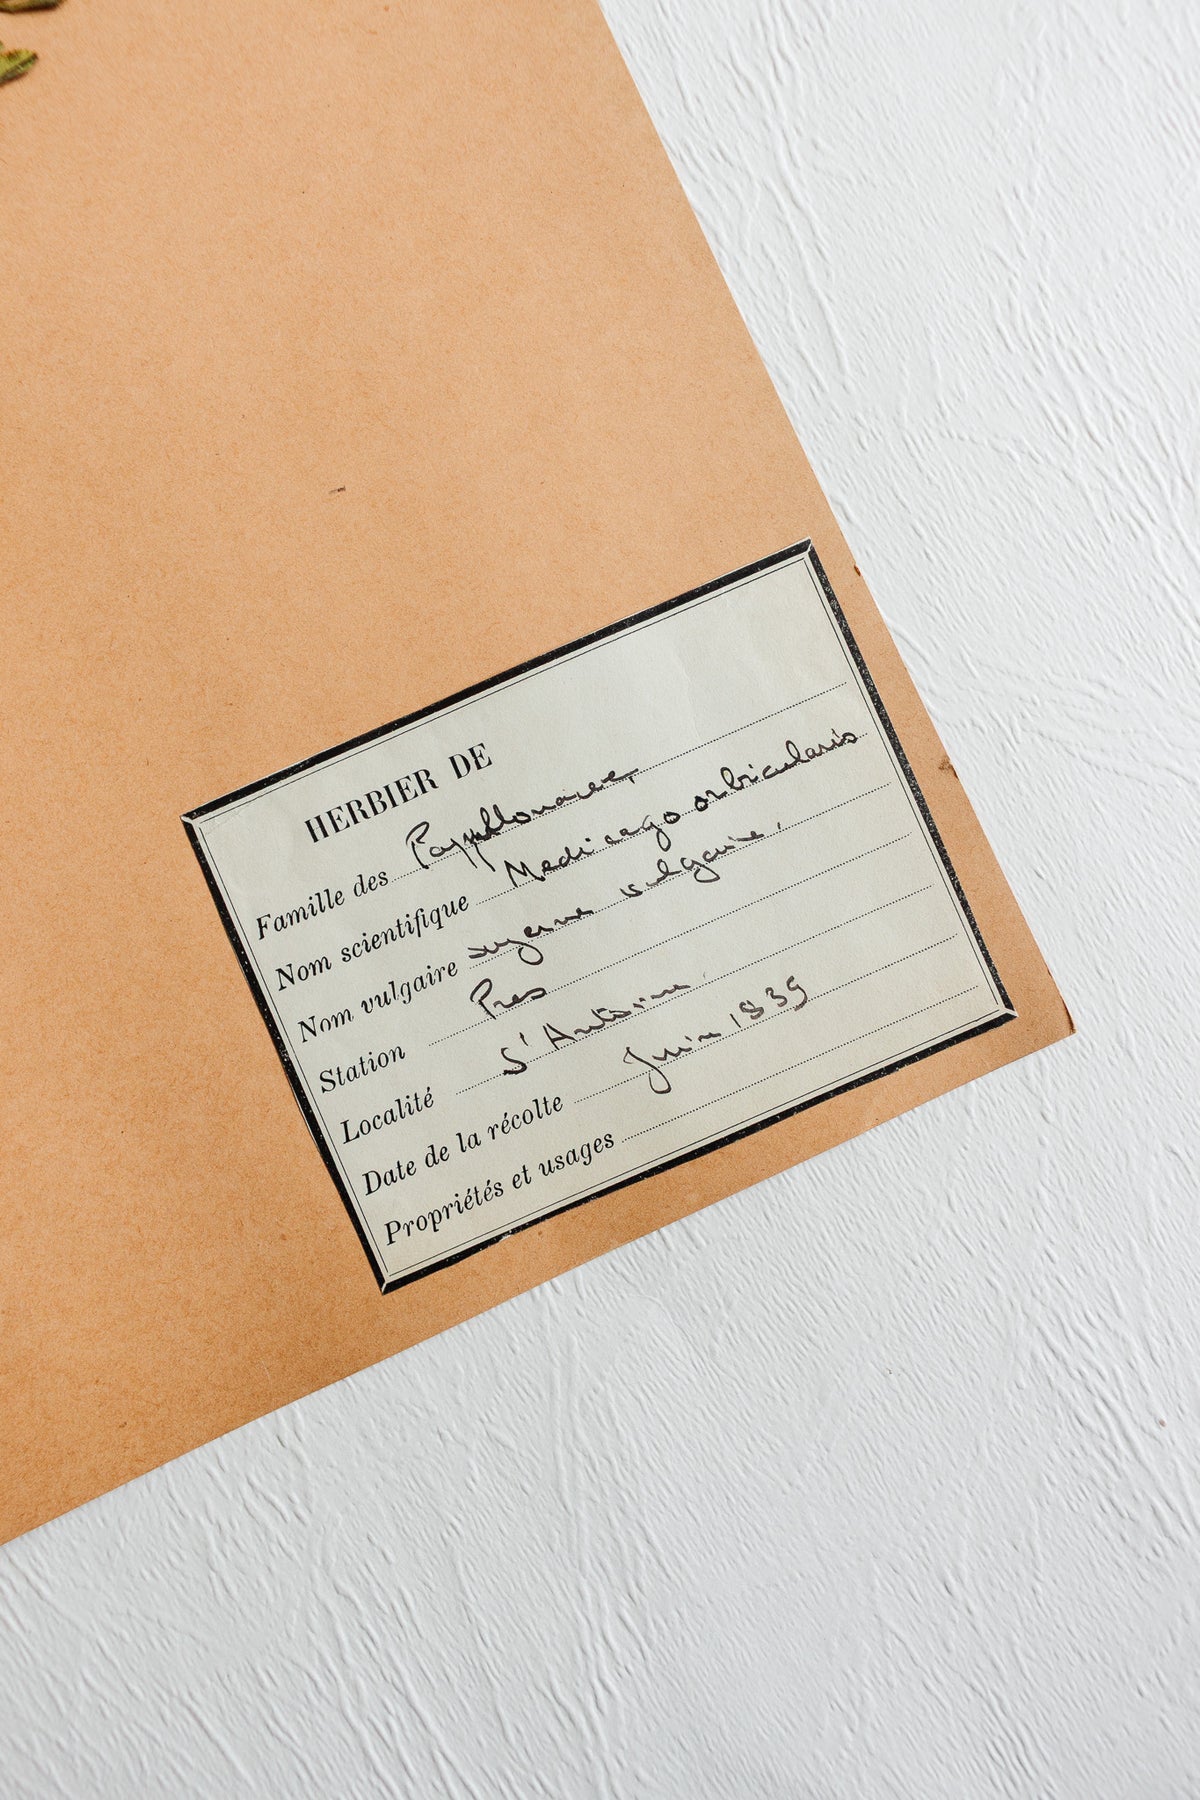 HERBIER DE
Famille des Papillonacee,
Nom scientifique Medicago orbicularis
Nom vulgaire luzerne vulgaire,
Station Pres
Localité St Antoine
Date de la récolte Juin 1839
Propriétés et usages